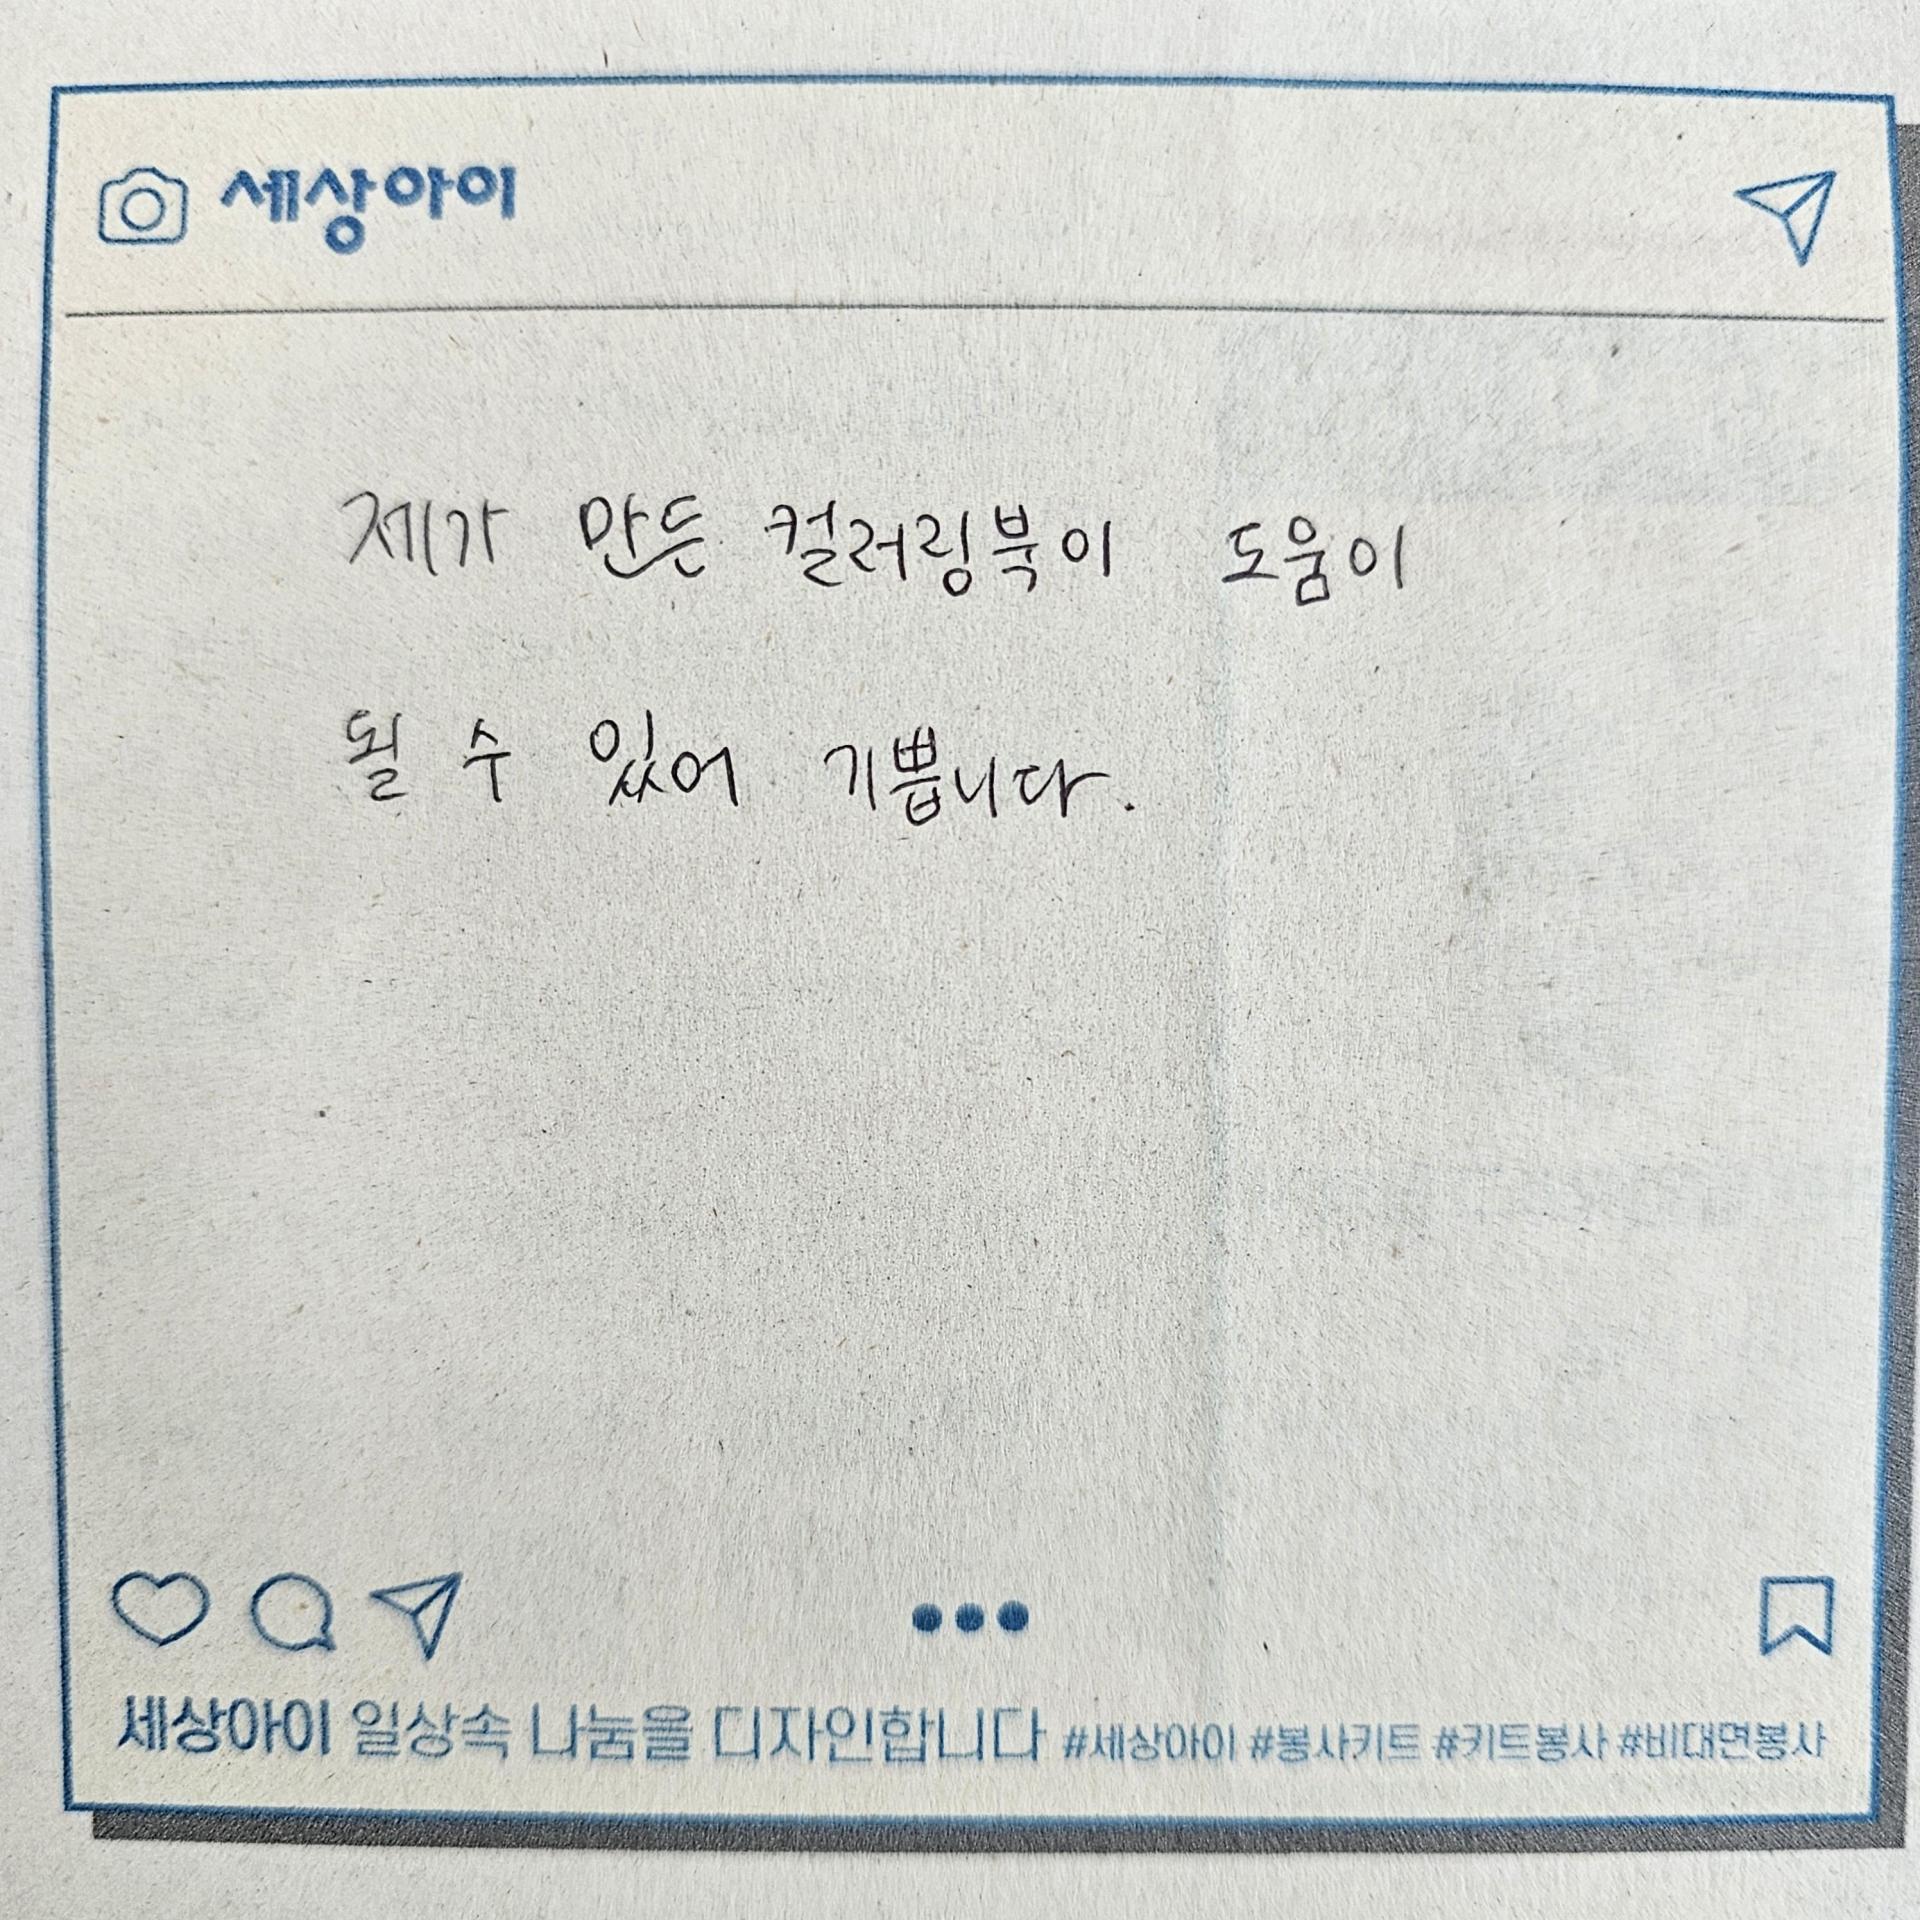 세상아이
제가 만든 컬러링북이 도움이
될 수 있어 기쁩니다.
세상아이 일상속 나눔을 디자인합니다 #세상아이 #봉사키트 #키트봉사 #비대면봉사